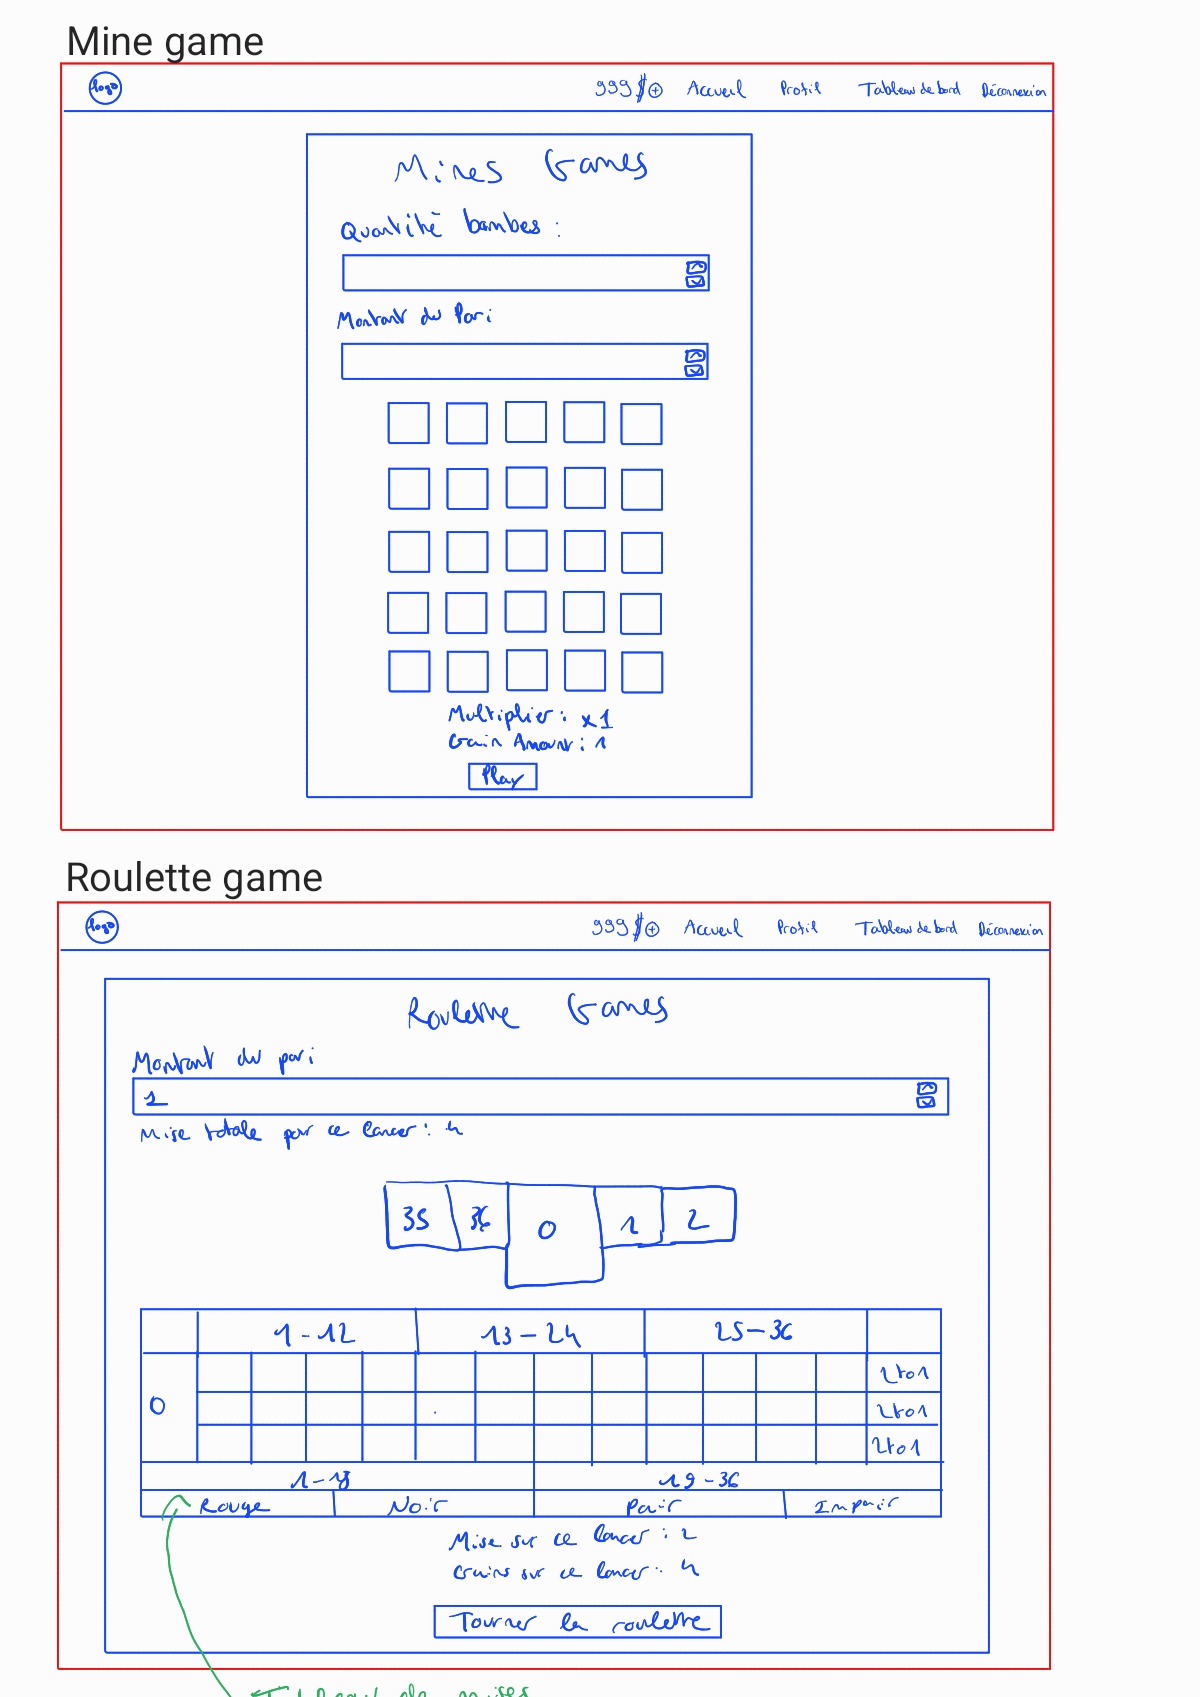 Mine game
logo 999$ + Accueil Profil Tableau de bord Déconnexion
Mines Games
Quantité bombes :
Montant du Pari
Multiplier : x1
Gain Amount : 1
Play
Roulette game
logo 999$ + Accueil Profil Tableau de bord Déconnexion
Roulette Games
Montant du pari
1
Mise totale par ce lancer : 4
35 36 0 1 2
1-12 13-24 25-36
2to1
0 2to1
2to1
1-18 19-36
Rouge Noir Pair Impair
Mise sur ce lancer : 2
Gains sur ce lancer : 4
Tourner la roulette